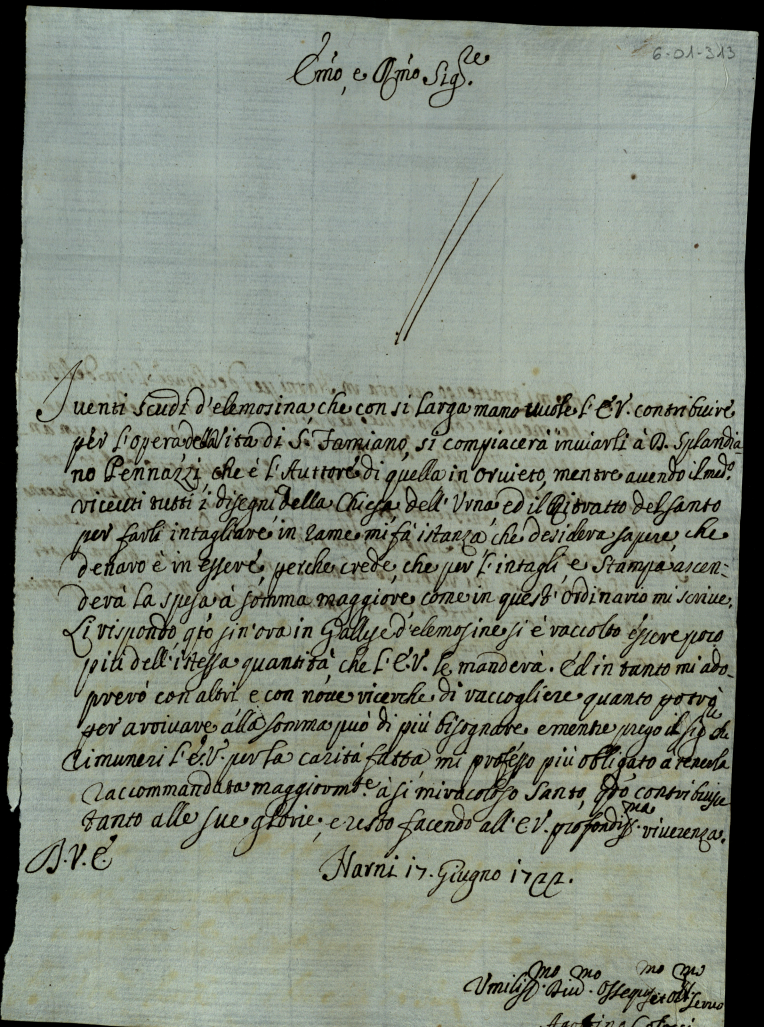 6-01-313
Em̃o, e Rm̃o Sig.re
I uenti scudi d'elemosina che con si larga mano uuole l'E.V. contribuire
per l'opera della Vita di S. Famiano, si compiacerà inuiarli à D. Splandia-
no Pennazzi, che è l'Auttore di quella in Oruieto, mentre auendo il med.o
riceuti tutti i disegni della Chiesa dell'Vrna ed il Ritratto del Santo
per farli intagliare in rame mi fà istanza, che desidera sapere che
denaro è in essere, perche crede, che per l'intagli e stampa, ascen-
derà la spesa à somma maggiore come in quest'ordinario mi scriue.
Li rispondo, q̃to sin'ora in Gallese d'elemosine si è raccolto essere poco
più dell'istessa quantità che l'E.V. le manderà. Ed in tanto mi ado-
prerò con altri e con noue ricerche di raccogliere quanto potrà
per arriuare alla somma può di più bisognare e mentre prego il Sig.
rimuneri l'E.V. per la carità fatta mi professo più obligato a tenerla
raccommandata maggiorm.te à si miracoloso Santo, contribuisce
tanto alle sue glorie, e resto facendo all'E.V. profondiss.ma riuerenza.
D.V.E.
Narni 17. Giugno 1722.
Vmiliss.mo Diu.mo Osseq.mo et Obl.mo Seruo
Agostino